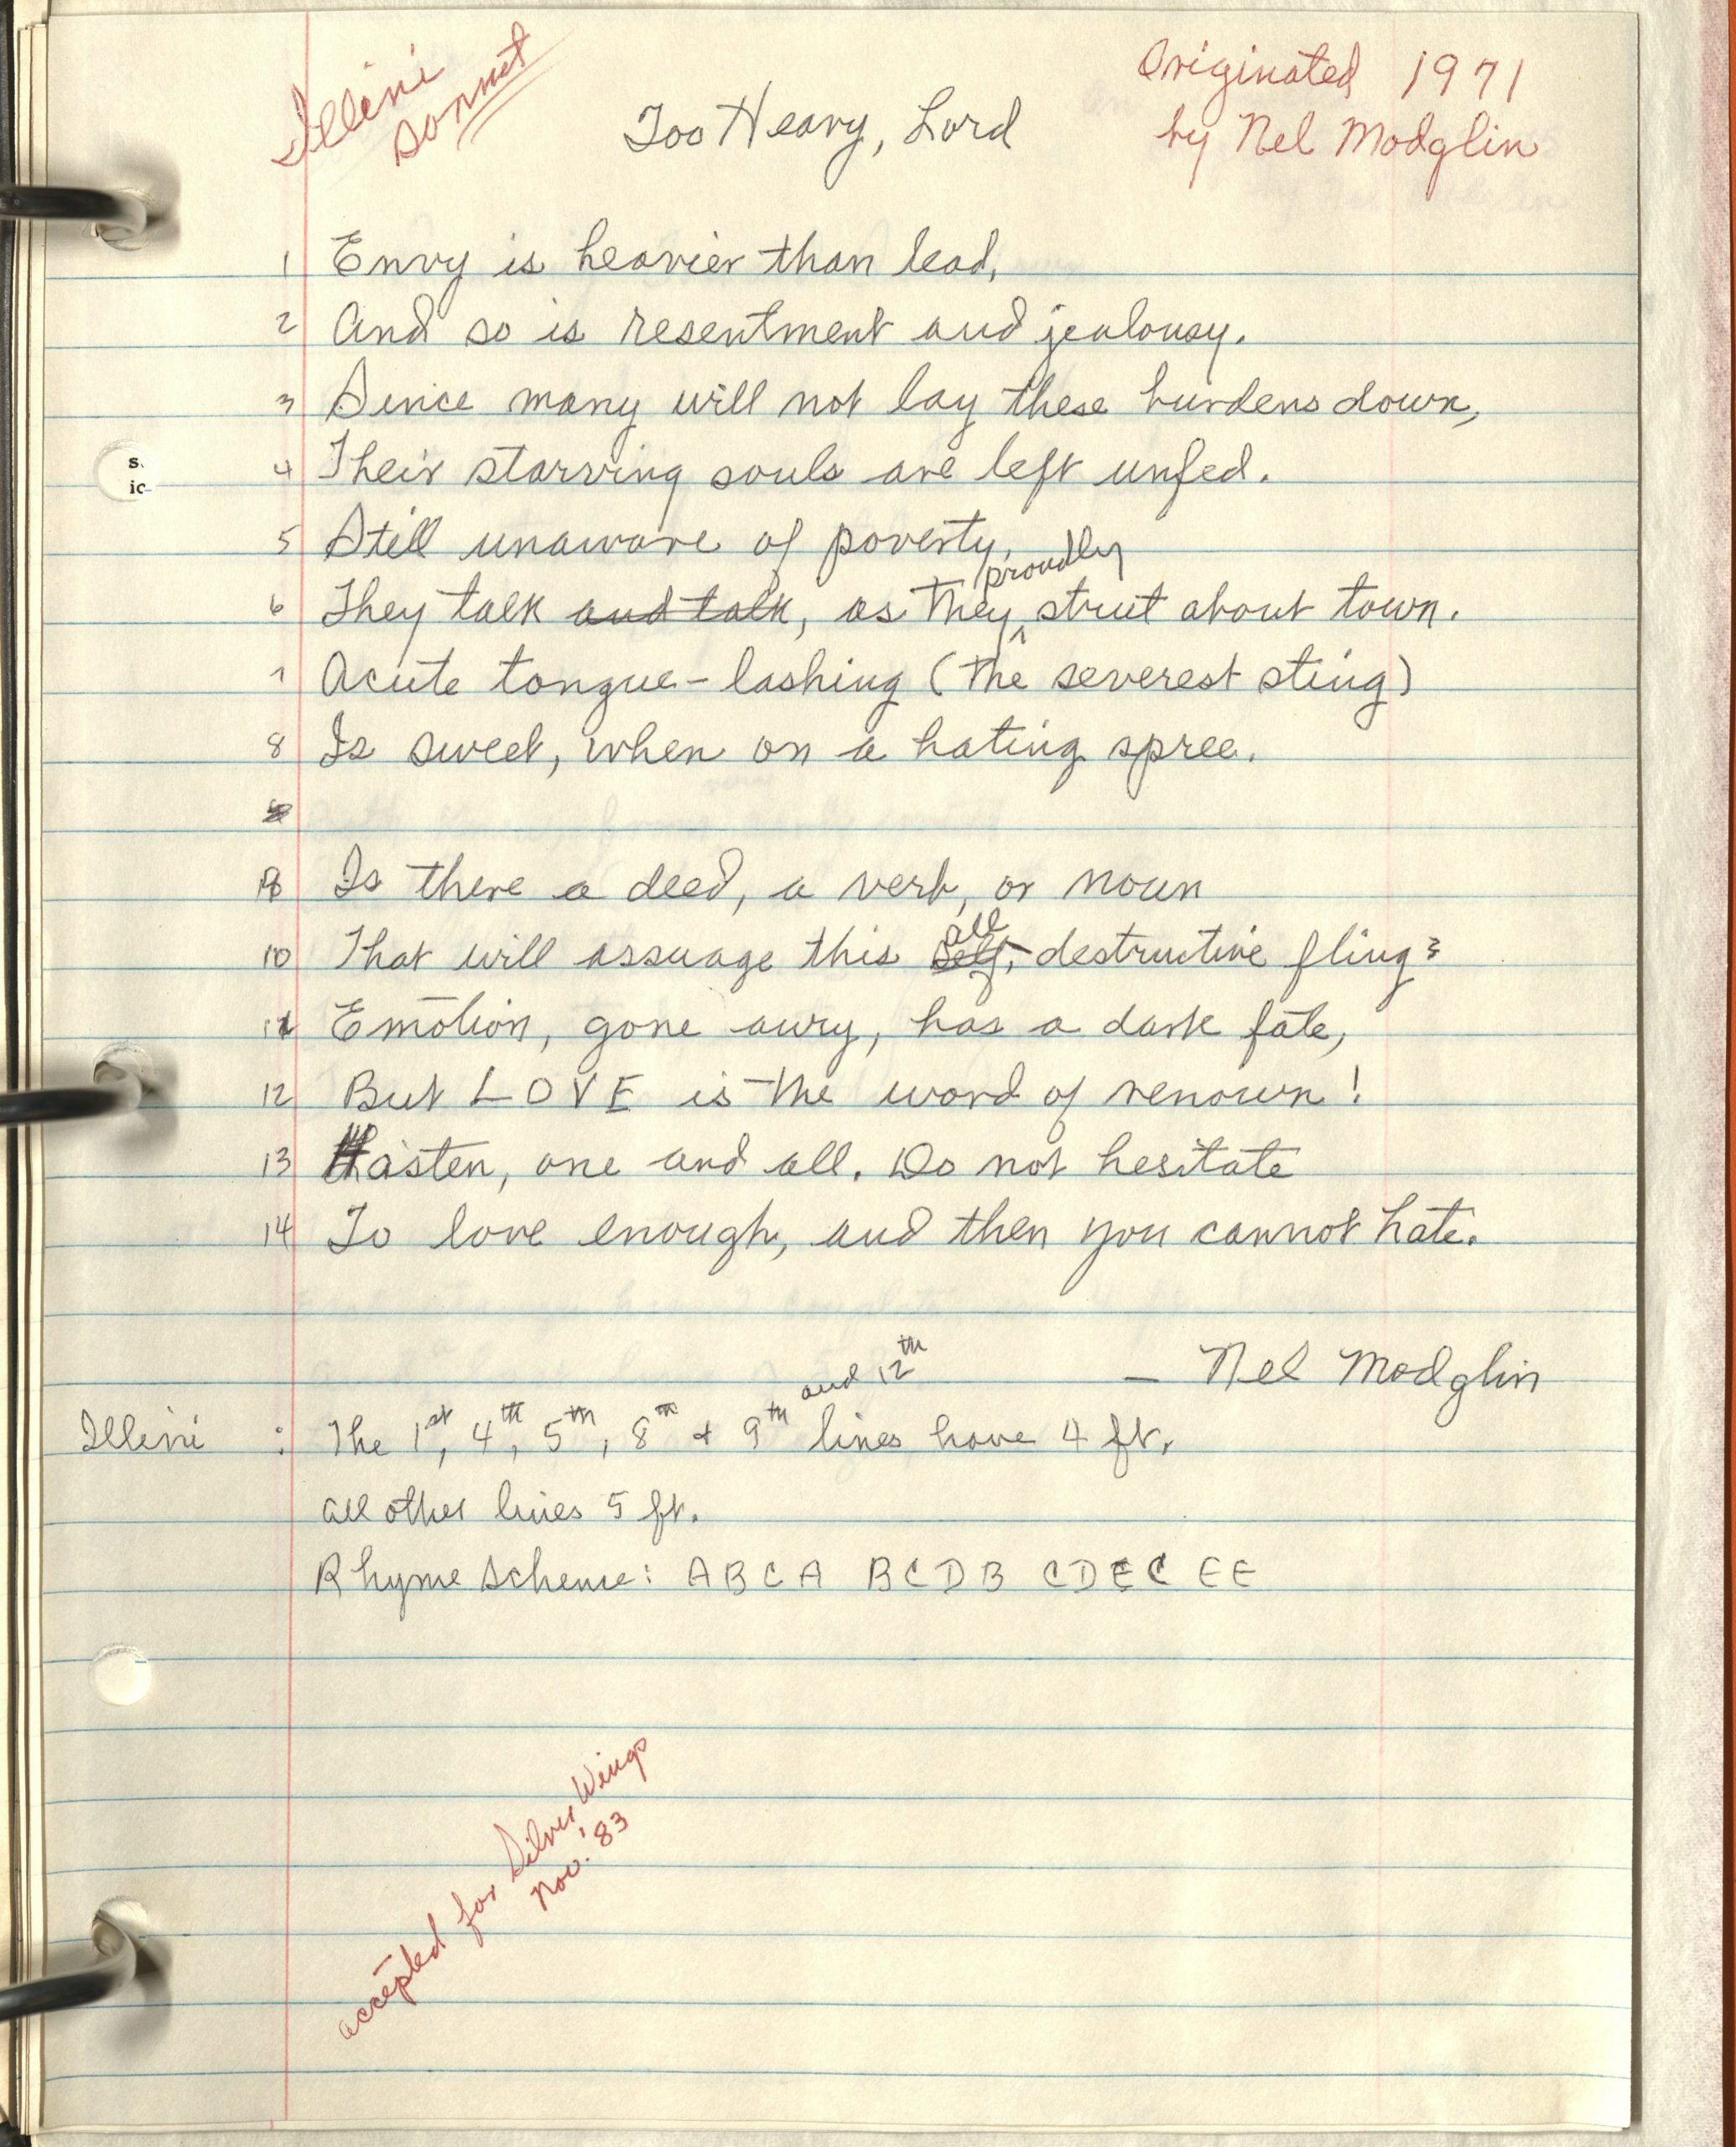 Illini
Sonnet
Originated 1971
by Nel Modglin
Too Heavy, Lord
1 Envy is heavier than lead,
2 And so is resentment and jealousy.
3 Since many will not lay these burdens down,
4 Their starving souls are left unfed.
5 Still unaware of poverty,
proudly
6 They talk and talk, as they strut about town.
7 Acute tongue-lashing (the severest sting)
8 Is sweet, when on a hating spree.
9 Is there a deed, a verb, or noun
all
10 That will assuage this self-destructive fling?
11 Emotion, gone awry, has a dark fate,
12 But LOVE is the word of renown!
13 Hasten, one and all. Do not hesitate
14 To love enough, and then you cannot hate.
— Nel Modglin
and 12th
Illini : The 1st, 4th, 5th, 8th & 9th lines have 4 ft.
all other lines 5 ft.
Rhyme scheme: ABCA BCDB CDEC EE
accepted for Silver Wings
Nov. '83
s.
ic